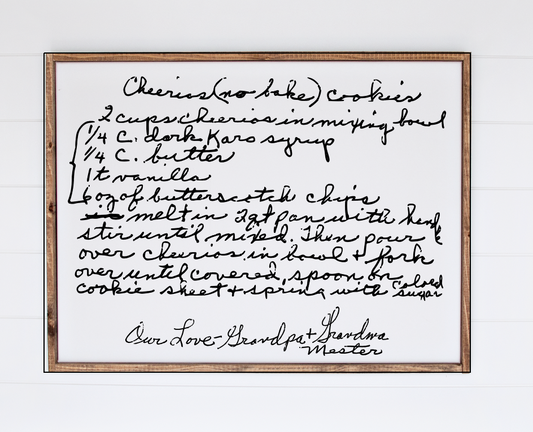 Cheerios (no bake) cookies
2 cups cheerios in mixing bowl
1/4 C. dark Karo syrup
1/4 C. butter
1 t vanilla
6 oz of butterscotch chips
melt in 2 qt pan with heat &
stir until mixed. Then pour
over cheerios in bowl + fork
over until covered, spoon on
cookie sheet + spring with colored sugar
Our Love - Grandpa + Grandma
Mester